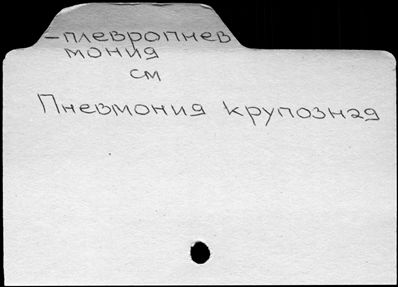 -плевропнев
мония
см
Пневмония крупозная